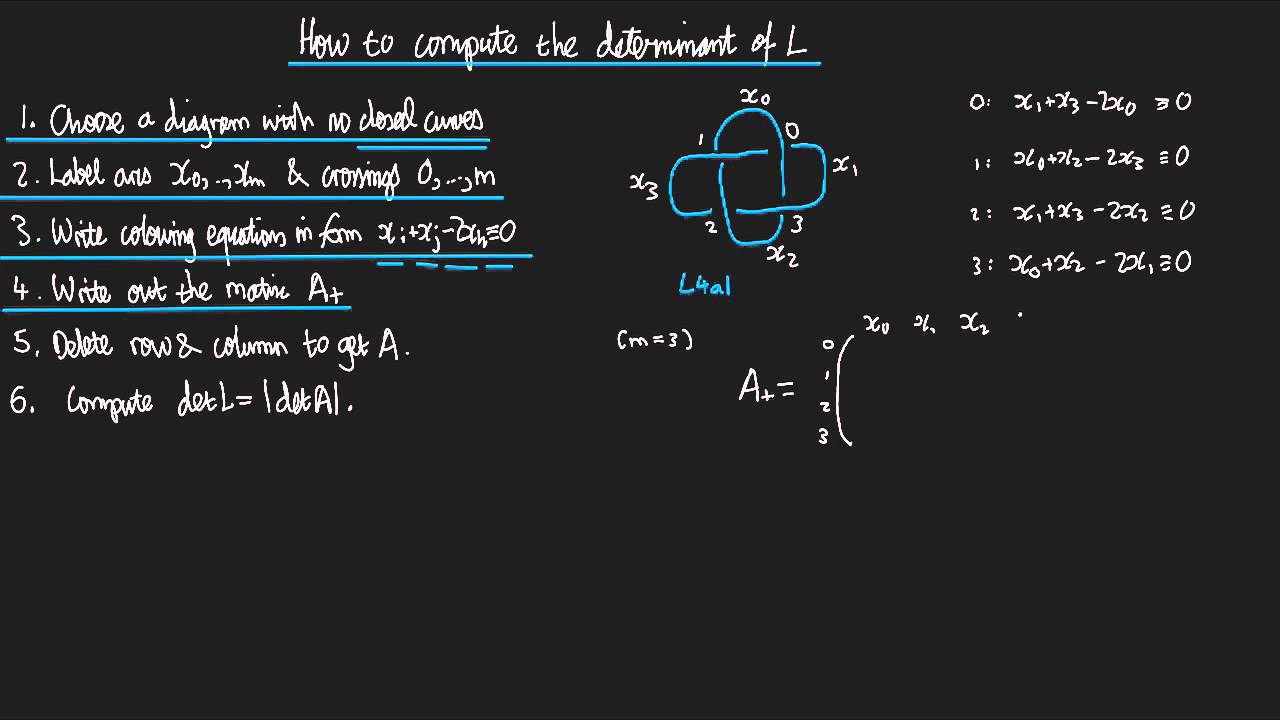 How to compute the determinant of L
1. Choose a diagram with no closed curves
2. Label arcs x₀,..,xₘ & crossings 0,...,m
3. Write colouring equations in form xᵢ+xⱼ-2xₖ≡0
4. Write out the matrix A₊
5. Delete row & column to get A.
6. Compute det L = |det A|.
x₀
1
0
x₃
x₁
2
3
x₂
L4a1
0: x₁+x₃-2x₀ ≡0
1: x₀+x₂-2x₃ ≡0
2: x₁+x₃-2x₂ ≡0
3: x₀+x₂-2x₁ ≡0
(m=3)
x₀ x₁ x₂
A₊=
0
1
2
3
(